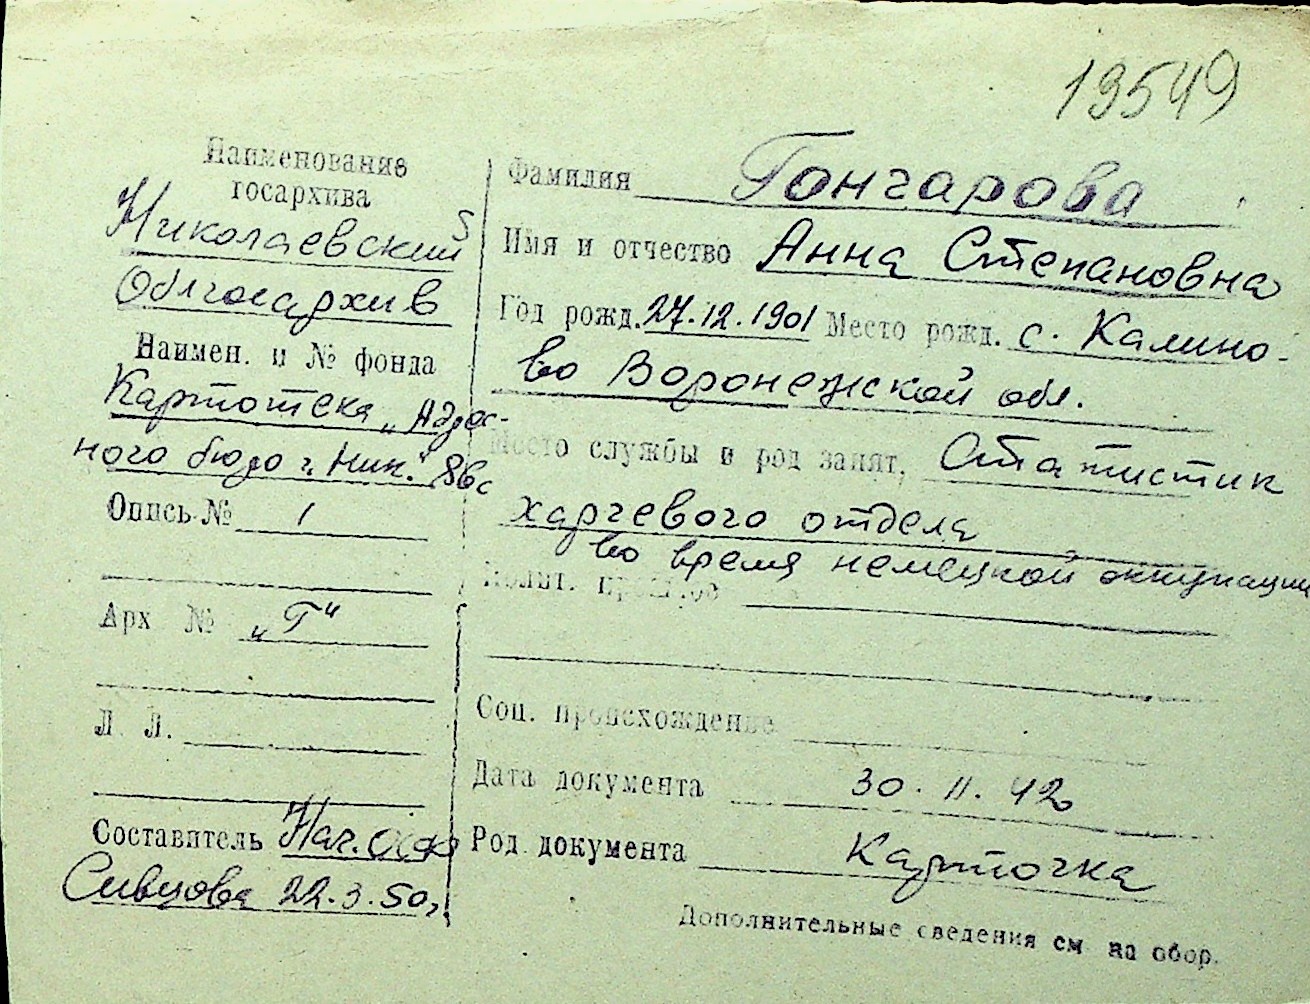 19549
Наименование
госархива
Николаевский
Облгосархив
Наимен. и № фонда
Картотека „Адрес-
ного бюро г. Ник."
Опись № 1
Арх № „Г"
Л. Л.
Составитель Нач.
Сивцова 22.3.50г.
Фамилия Гончарова
Имя и отчество Анна Степановна
Год рожд. 27.12.1901 Место рожд. с. Калино-
во Воронежской обл.
Место службы и род занят. Статистик
харчевого отдела
во время немецкой оккупации
Полит. прошлое
Соц. происхождение
Дата документа 30.11.42
Род документа Карточка
Дополнительные сведения см на обор.